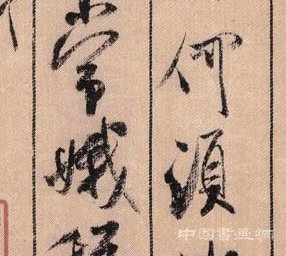 何須
常娥
中国書画網